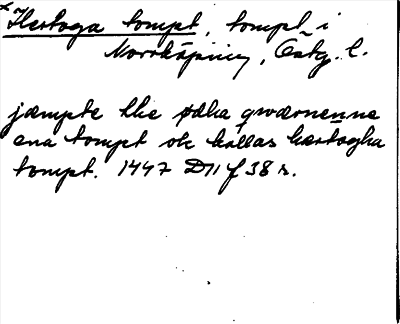 *Hertoga tompt, tompt i
Norrköping, Östg. l.
jæmpte the ødha qwærnenne
ena tompt ok kallas hærtogha
tompt. 1447 D11 f 38 r.